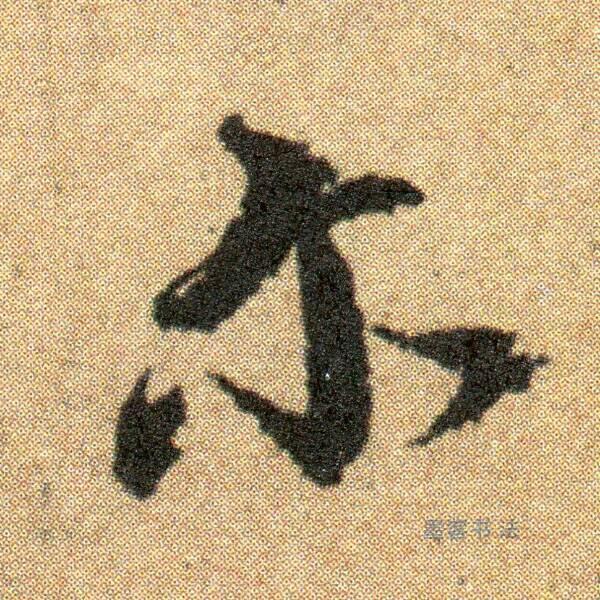 尓
墨客书法